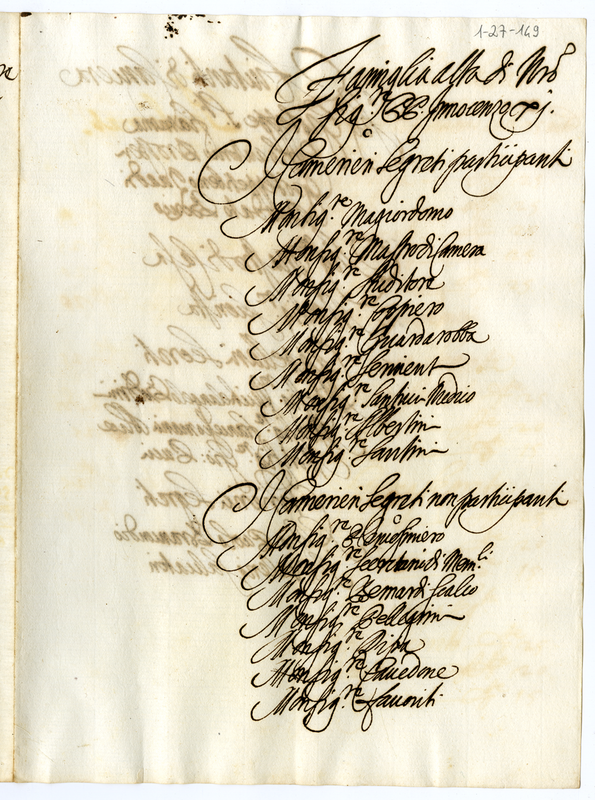 1-27-149
Famiglia alta di Nro
Sig.re PP. Innocenzo xj.
Camerieri Segreti participanti
Monsig.re Magiordomo
Monsig.re Mastro di Camera
Monsig.re Auditore
Monsig.re Coppiero
Monsig.re Guardarobba
Monsig.re
Monsig.re Santucci Medico
Monsig.re Albertini
Monsig.re Santini
Camerieri Segreti non participanti
Monsig.re Elemosiniero
Monsig.re Secretario di Mem.li
Monsig.re Bernardi Scalco
Monsig.re Pellegrini
Monsig.re Pipa
Monsig.re Pauedone
Monsig.re Fauoriti